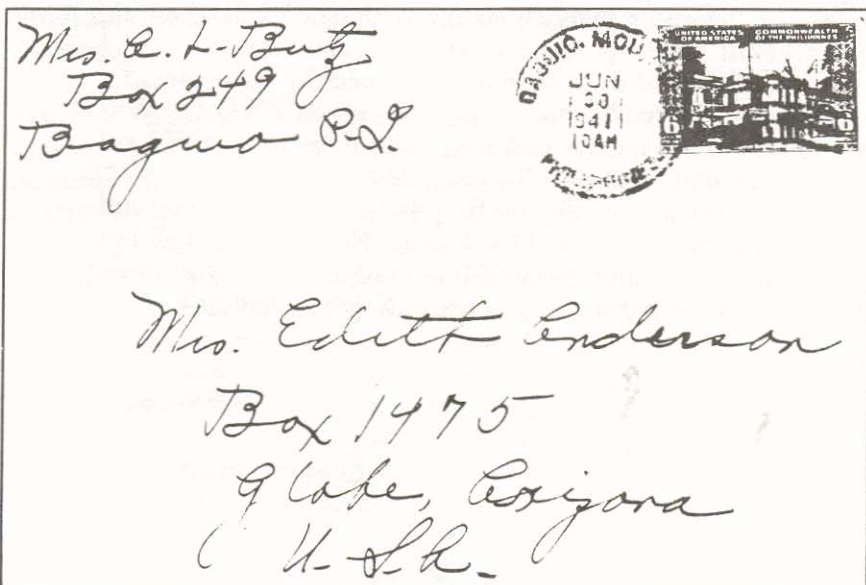 Mrs. A. L. Butz
Box 249
Baguio P.I.
BAGUIO, MOU
JUN
30
1941
10AM
PHILIPPINES
UNITED STATES OF AMERICA
COMMONWEALTH OF THE PHILIPPINES
Mrs. Edith Anderson
Box 1475
Globe, Arizona
U.S.A.